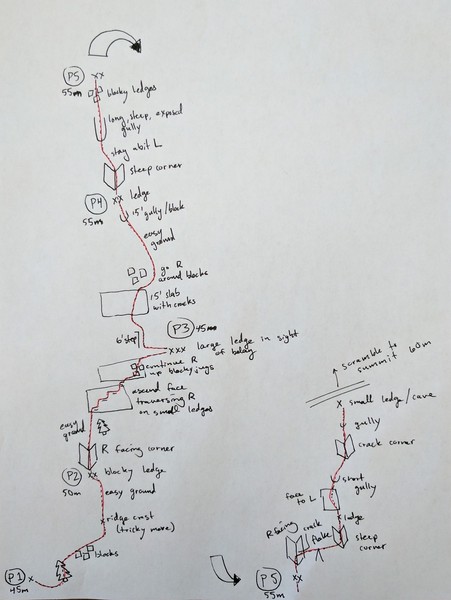 P5
xx
55m
blocky ledges
long, steep, exposed
gully
stay abit L
steep corner
xx ledge
P4
55m
15' gully/block
easy
ground
go R
around blocks
15' slab
with cracks
P3 45m
6' step
xxx large ledge in sight
of belay
continue R
up blocky jugs
ascend face
traversing R
on small ledges
easy
ground
R facing corner
P2
xx blocky ledge
50m
easy ground
x ridge crest
(tricky move)
blocks
P1
x
45m
scramble to
summit 60m
x small ledge/cave
gully
crack corner
short
gully
face
to L
x ledge
R facing
crack
flake
steep
corner
P5
xx
55m